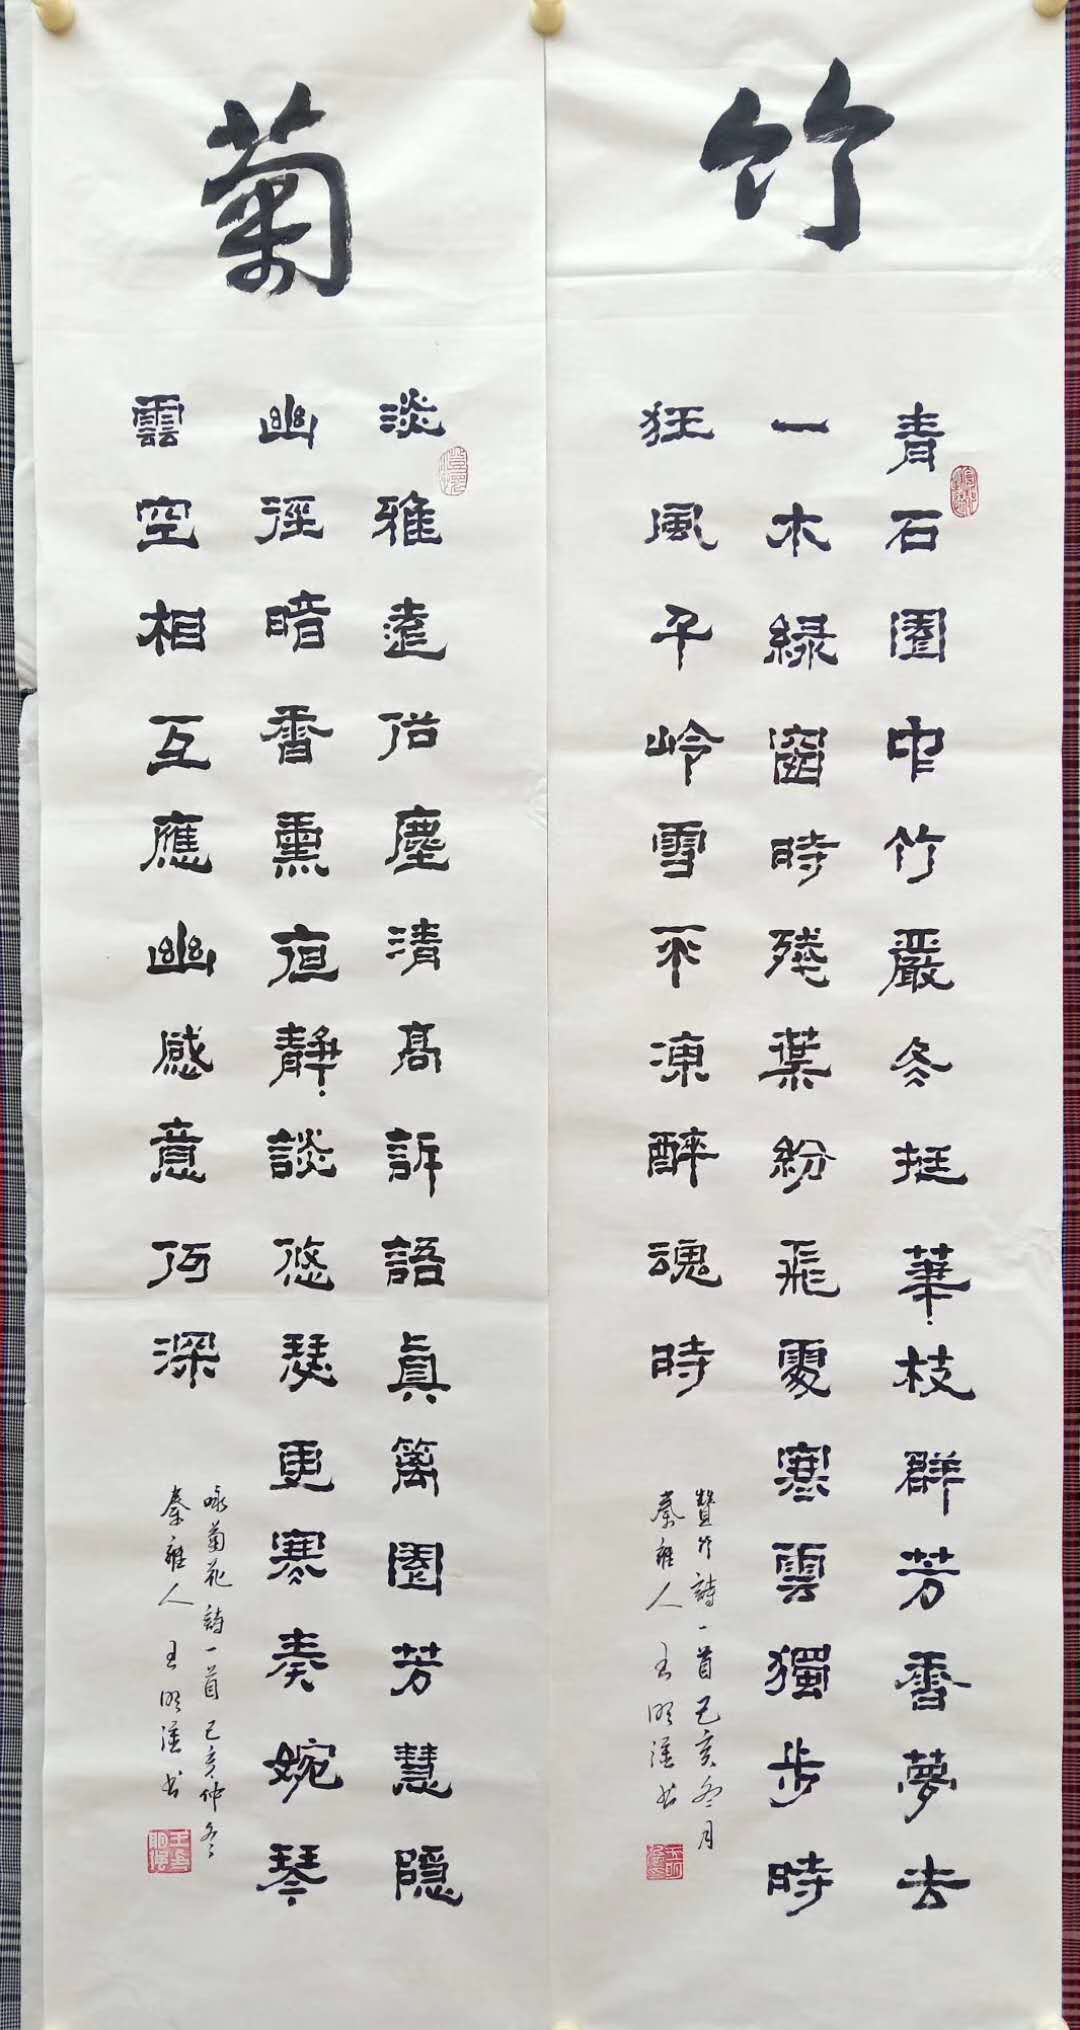 竹
青石園中竹嚴冬挺華枝群芳香夢去
一木緑窗時殘葉紛飛處寒雲獨步時
狂風千岭雪不凍醉魂時
贊竹詩一首己亥冬月
秦雍人王明書
菊
淡雅遠俗塵清高訴語真篱園芳慧隱
幽徑暗香熏夜静談悠瑟更寒奏婉琴
雲空相互應幽感意何深
咏菊花詩一首己亥仲冬
秦雍人王明書